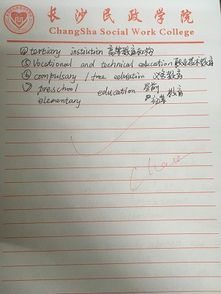 长沙民政学院
ChangSha Social Work College
④ tertiary institution 高等教育机构
⑤ Vocational and technical education 职业技术教育
⑥ compulsary / free education 义务教育
⑦ preschool education 学前教育
elementary 教育